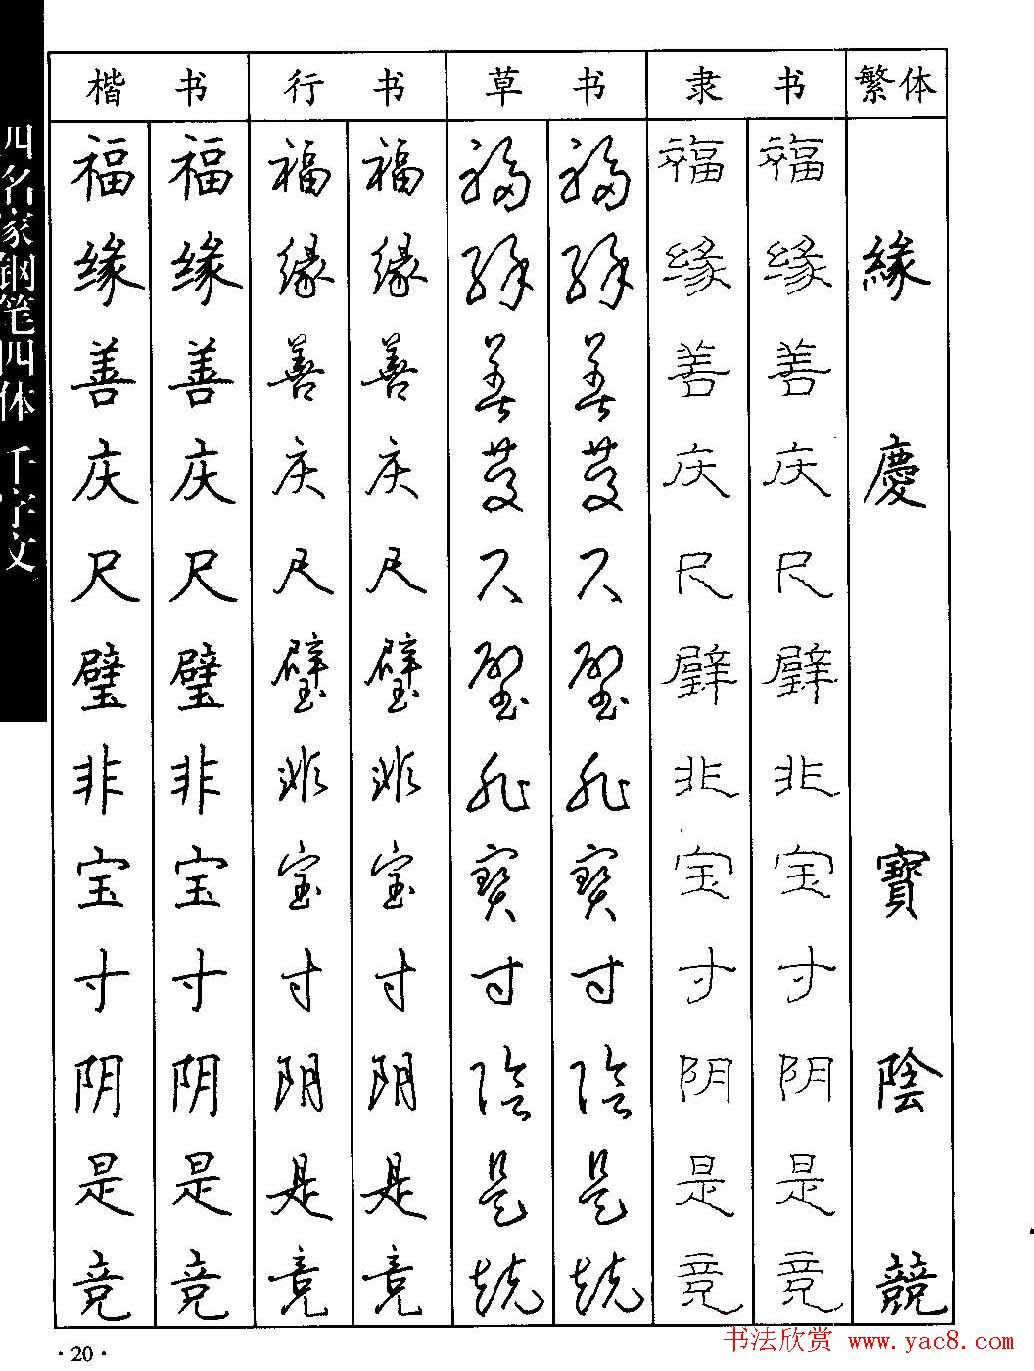 四名家钢笔四体 千字文
楷书 行书 草书 隶书 繁体
福 福 福 福 福 福 福 福
缘 缘 缘 缘 缘 缘 缘 缘 緣
善 善 善 善 善 善 善 善
庆 庆 庆 庆 慶 慶 庆 庆 慶
尺 尺 尺 尺 尺 尺 尺 尺
璧 璧 璧 璧 璧 璧 璧 璧
非 非 非 非 非 非 非 非
宝 宝 宝 宝 寶 寶 宝 宝 寶
寸 寸 寸 寸 寸 寸 寸 寸
阴 阴 阴 阴 陰 陰 阴 阴 陰
是 是 是 是 是 是 是 是
竞 竞 竞 竞 競 競 竞 竞 競
·20·
书法欣赏 www.yac8.com